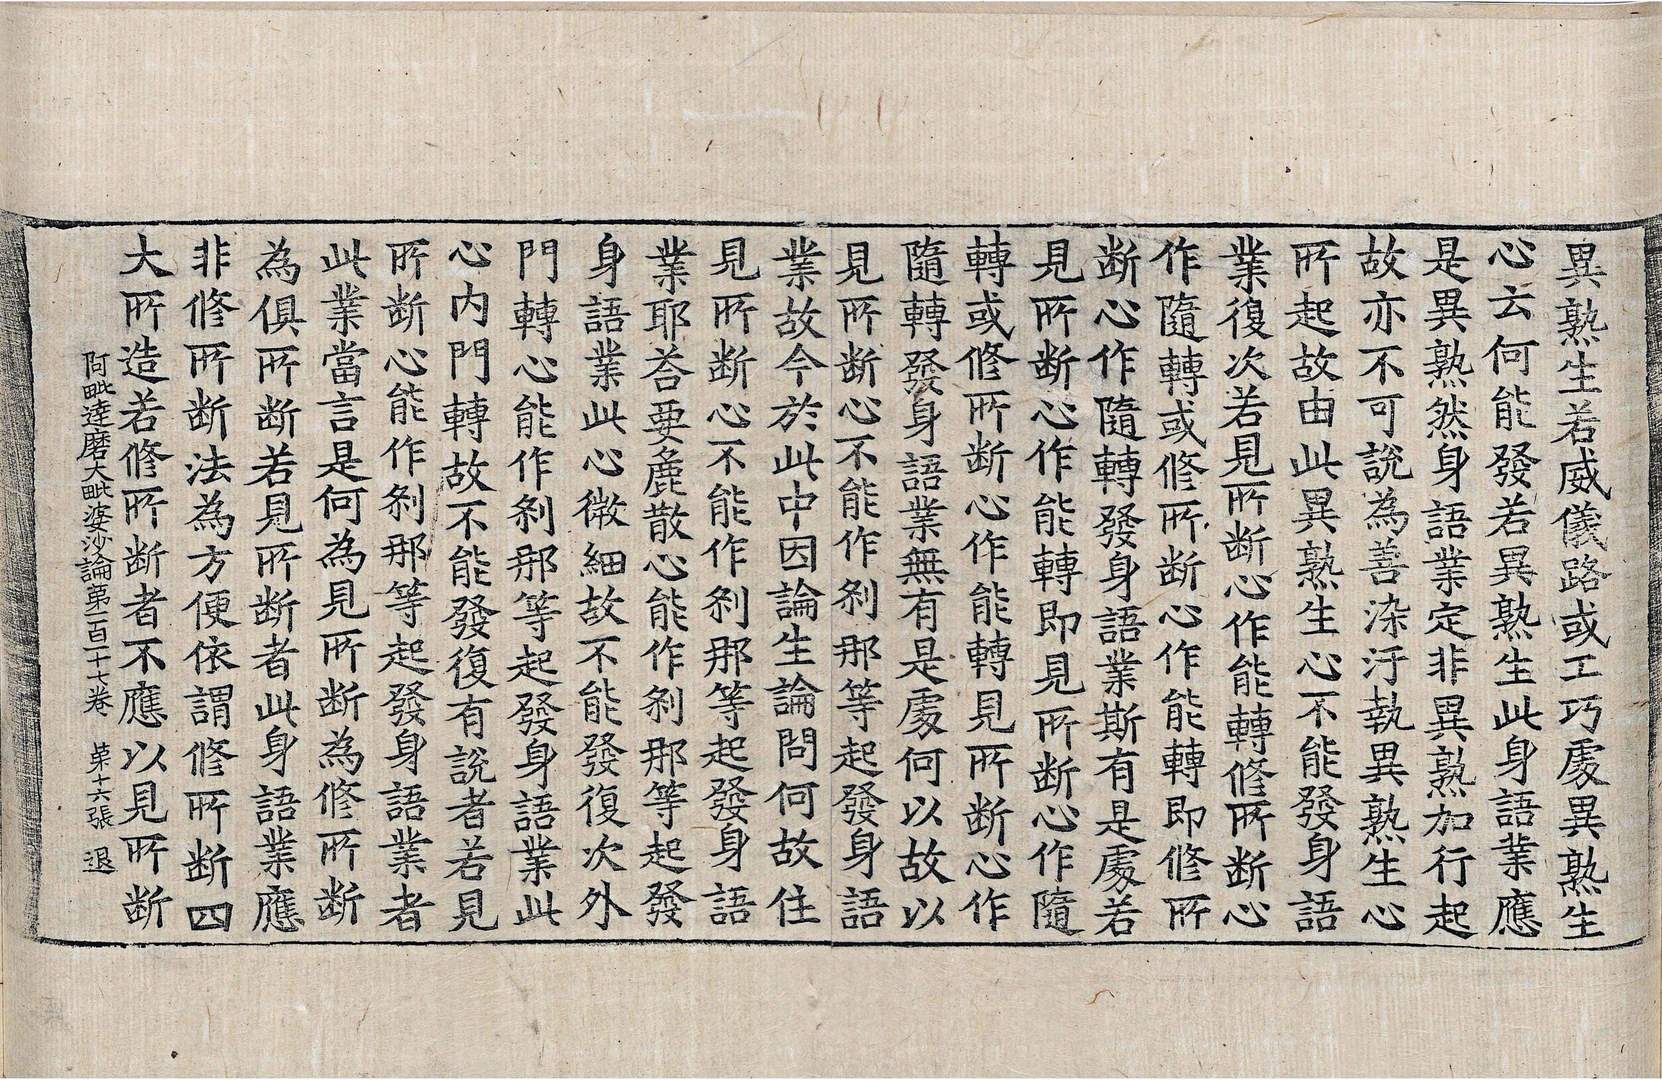 異熟生若威儀路或工巧處異熟生
心云何能發若異熟生此身語業應
是異熟然身語業定非異熟加行起
故亦不可說為善染汙執異熟生心
所起故由此異熟生心不能發身語
業復次若見所斷心作能轉修所斷心
作隨轉或修所斷心作能轉即修所
斷心作隨轉發身語業斯有是處若
見所斷心作能轉即見所斷心作隨
轉或修所斷心作能轉見所斷心作
隨轉發身語業無有是處何以故以
見所斷心不能作剎那等起發身語
業故今於此中因論生論問何故住
見所斷心不能作剎那等起發身語
業耶荅要麁散心能作剎那等起發
身語業此心微細故不能發復次外
門轉心能作剎那等起發身語業此
心內門轉故不能發復有說者若見
所斷心能作剎那等起發身語業者
此業當言是何為見所斷為修所斷
為俱所斷若見所斷者此身語業應
非修所斷法為方便依謂修所斷四
大所造若修所斷者不應以見所斷
阿毗達磨大毗婆沙論第一百一十七卷 第十六張 退